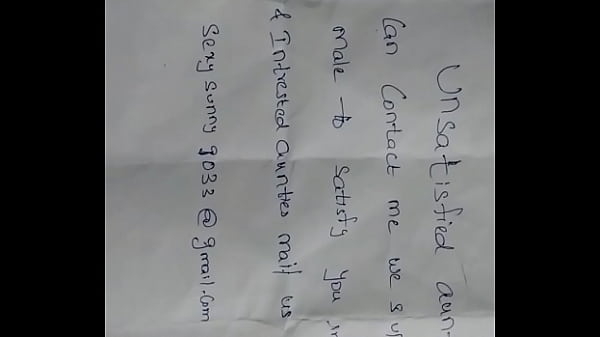 Unsatisfied aun-
Can Contact me we su
male to satisfy you in
& Intrested aunties mail us
Sexy sunny 9033 @ gmail.com